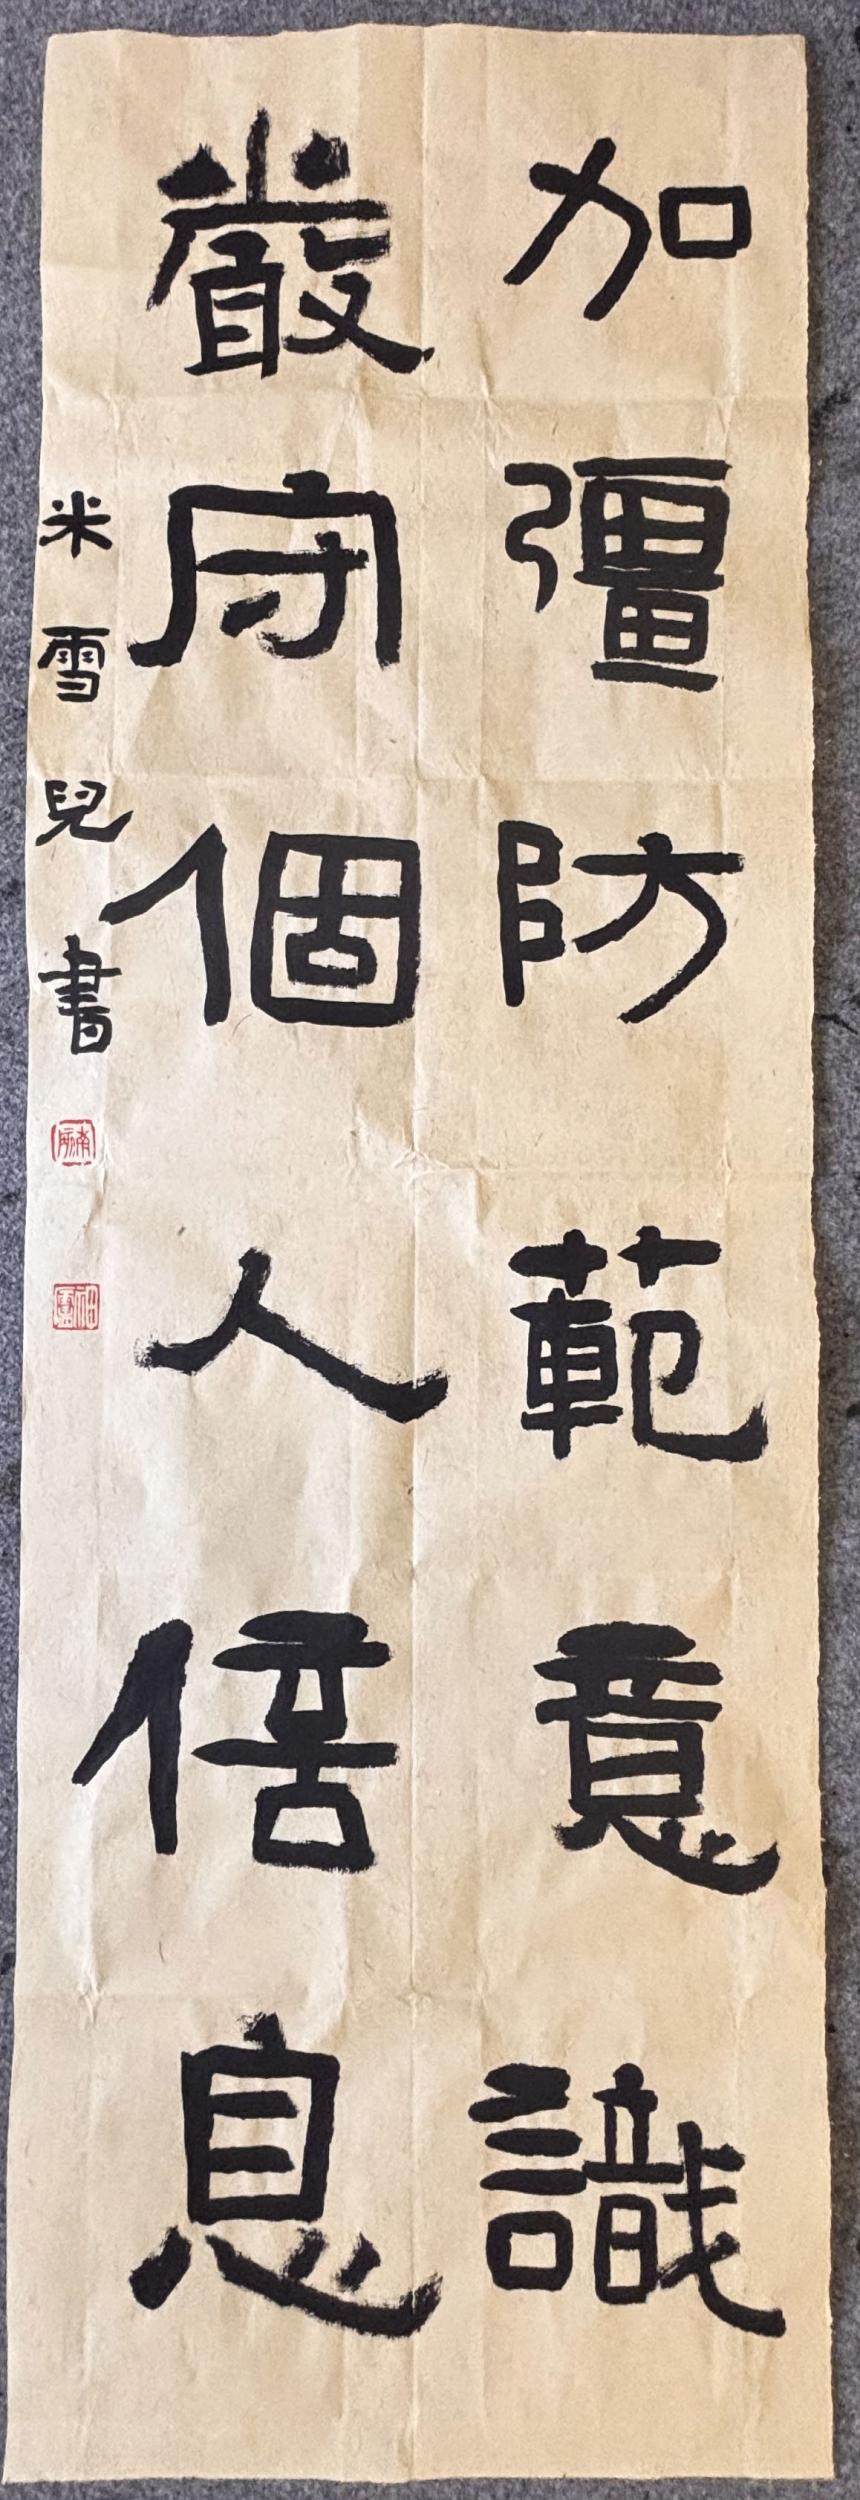 加彊防範意識
嚴守個人信息
米雪兒書